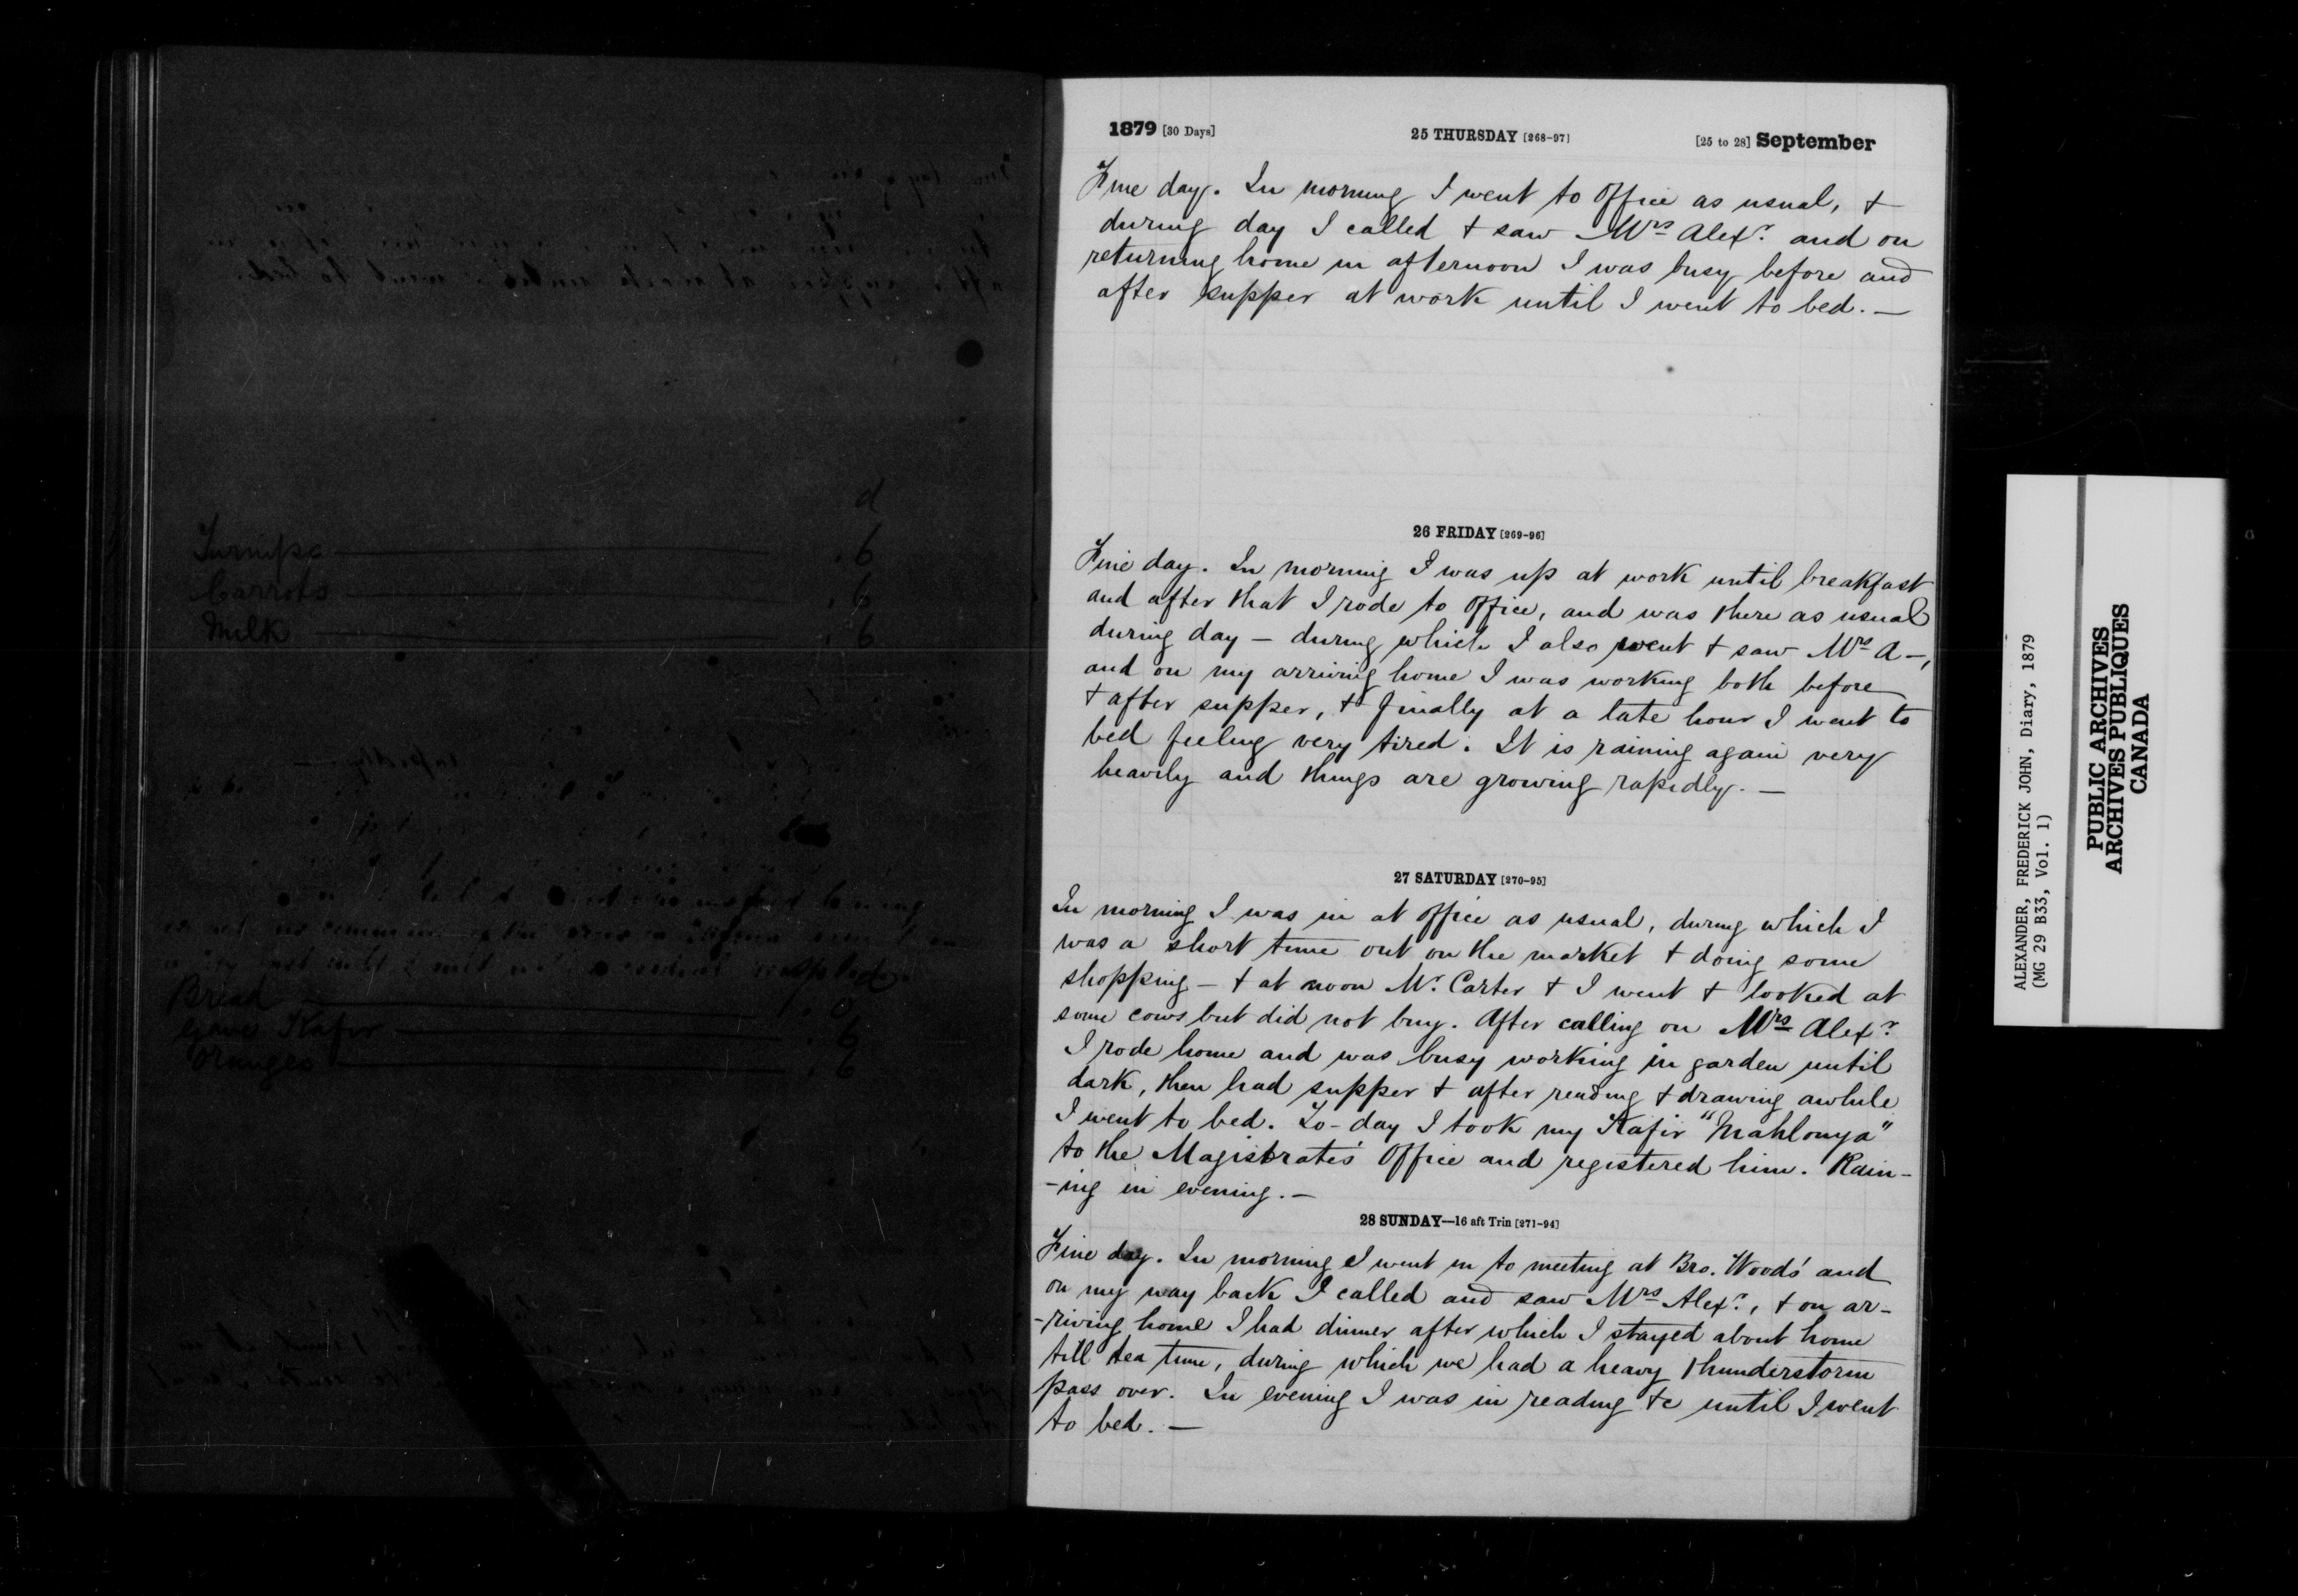 d
Turnips .6
Carrots .6
Milk .6
Bread 1.0
Gave Kafir .6
Oranges .6
1879 [30 Days] 25 THURSDAY [268-97] [25 to 28] September
Fine day. In morning I went to Office as usual, +
during day I called + saw Mrs Alexr. and on
returning home in afternoon I was busy before and
after supper at work until I went to bed. —
26 FRIDAY [269-96]
Fine day. In morning I was up at work until breakfast
and after that I rode to Office, and was there as usual
during day — during which I also went + saw Mrs A—,
and on my arriving home I was working both before
+ after supper, + finally at a late hour I went to
bed feeling very tired. It is raining again very
heavily and things are growing rapidly. —
27 SATURDAY [270-95]
In morning I was in at office as usual, during which I
was a short time out on the market + doing some
shopping — + at noon Mr. Carter + I went + looked at
some cows but did not buy. After calling on Mrs Alexr.
I rode home and was busy working in garden until
dark, then had supper + after reading + drawing awhile
I went to bed. To-day I took my Kafir "Mahlonya"
to the Magistrate's Office and registered him. Rain-
-ing in evening. —
28 SUNDAY—16 aft Trin [271-94]
Fine day. In morning I went in to meeting at Bro. Woods' and
on my way back I called and saw Mrs Alexr., + on ar-
-riving home I had dinner after which I stayed about home
till tea time, during which we had a heavy thunderstorm
pass over. In evening I was in reading +c until I went
to bed. —
ALEXANDER, FREDERICK JOHN, Diary, 1879
(MG 29 B33, Vol. 1)
PUBLIC ARCHIVES
ARCHIVES PUBLIQUES
CANADA